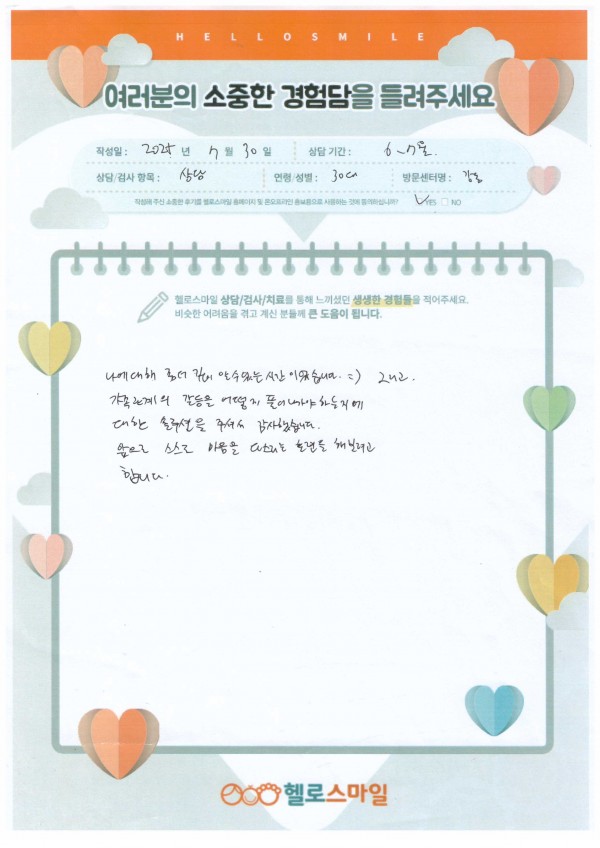 HELLOSMILE
여러분의 소중한 경험담을 들려주세요
작성일 : 2025 년 7 월 30 일 상담 기간 : 6~7월.
상담/검사 항목 : 상담 연령/성별 : 30대 방문센터명 : 강동
작성해 주신 소중한 후기를 헬로스마일 홈페이지 및 온오프라인 홍보용으로 사용하는 것에 동의하십니까? ✓ YES □ NO
헬로스마일 상담/검사/치료를 통해 느끼셨던 생생한 경험들을 적어주세요.
비슷한 어려움을 겪고 계신 분들께 큰 도움이 됩니다.
나에대해 좀더 깊이 알수있는 시간이었습니다. =) 그리고.
가족관계의 갈등을 어떻게 풀어나가야하는지에
대한 솔루션을 주셔서 감사했습니다.
앞으로 스스로 마음을 다스리는 훈련을 해보려고
합니다.
헬로스마일